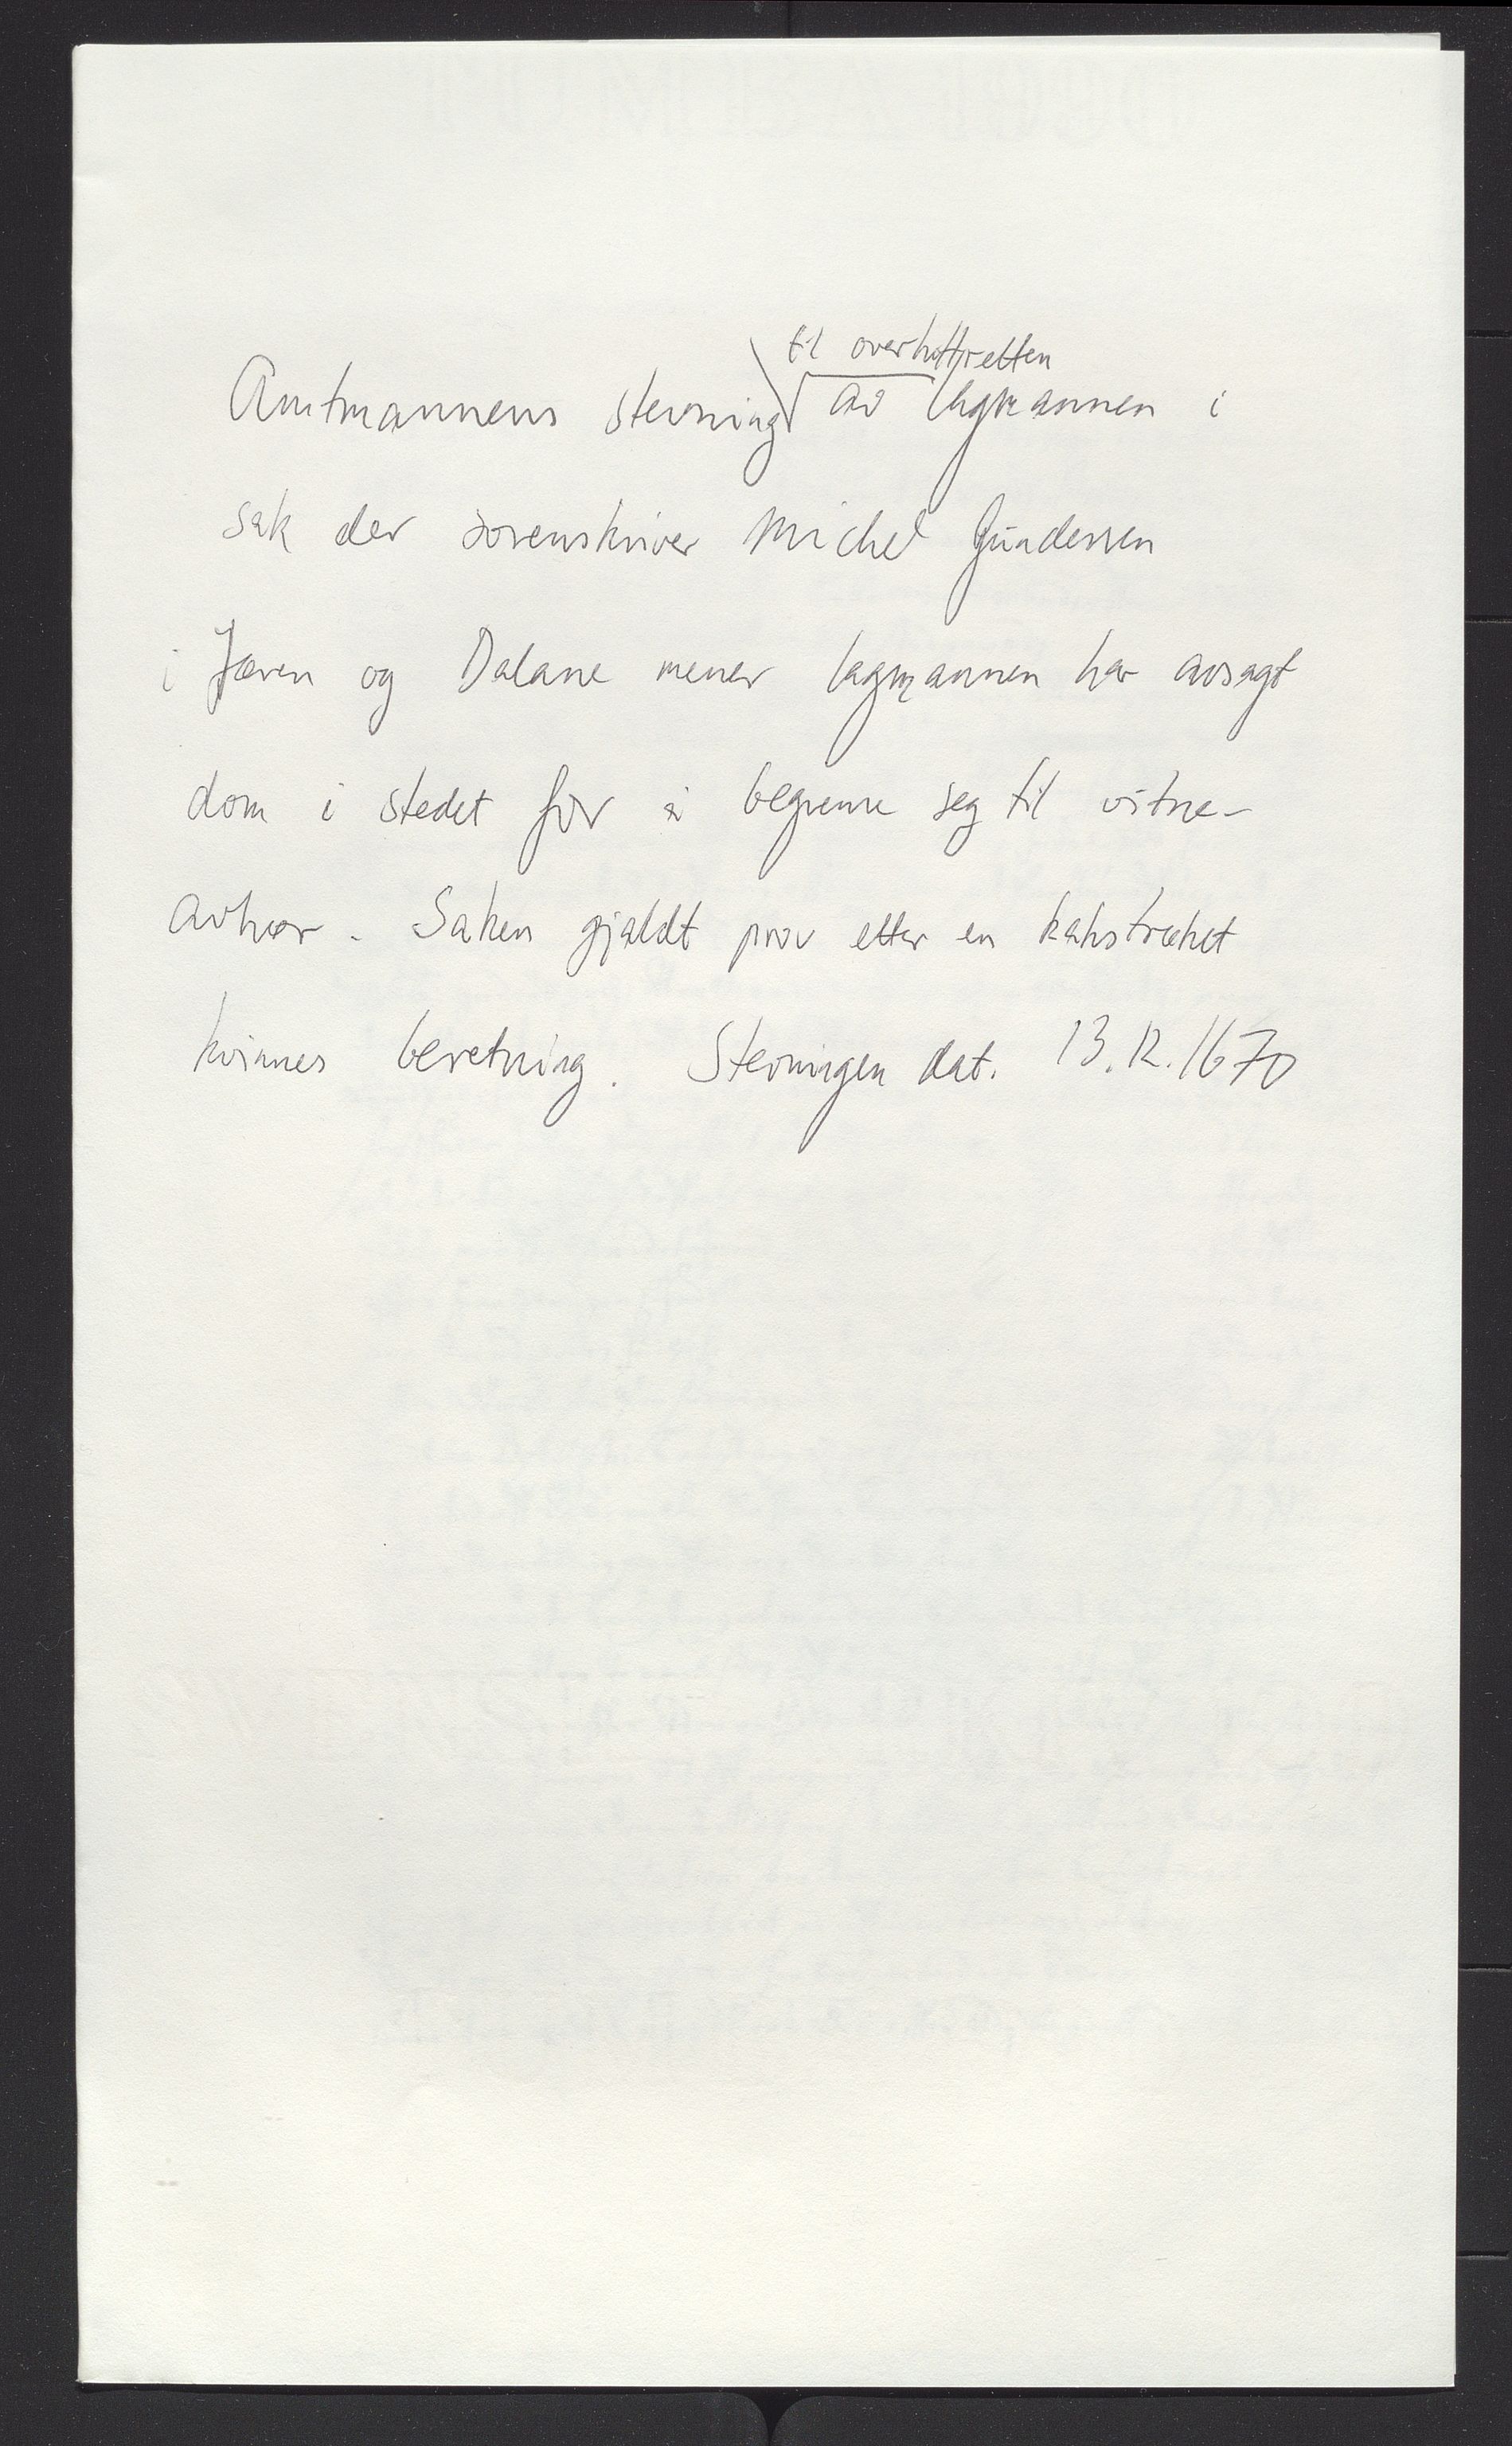 til overhoffretten
Amtmannens stevning av lagmannen i
sak der sorenskriver Michel Gündersen
i Jæren og Dalane mener lagmannen har avsagt
dom i stedet for å begrense seg til vitne-
avhør. Saken gjaldt prøv etter en kakstrøket
kvinnes beretning. Stevningen dat. 13.12.1670